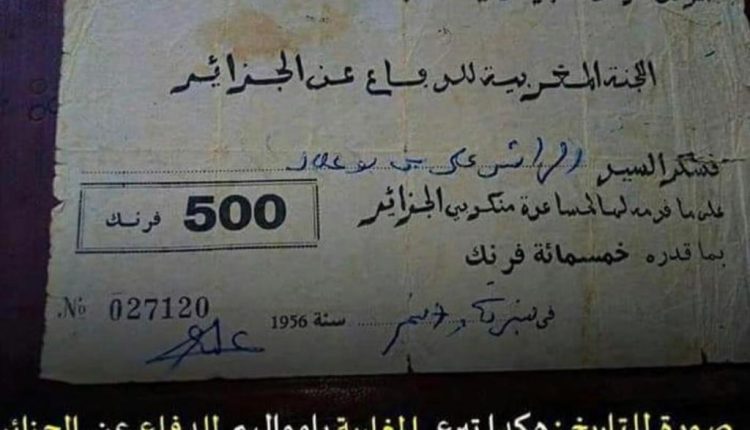 اللجنة المغربية للدفاع عن الجزائر
تشكر السيد الهاشمي علي بن بوعلام
على ما قدمه لها لمساعدة منكوبي الجزائر
500 فرنك
بما قدره خمسمائة فرنك
No. 027120
في سنة 1956
صورة للتاريخ : هكذا تبرع المغاربة بأموالهم للدفاع عن الجزائر